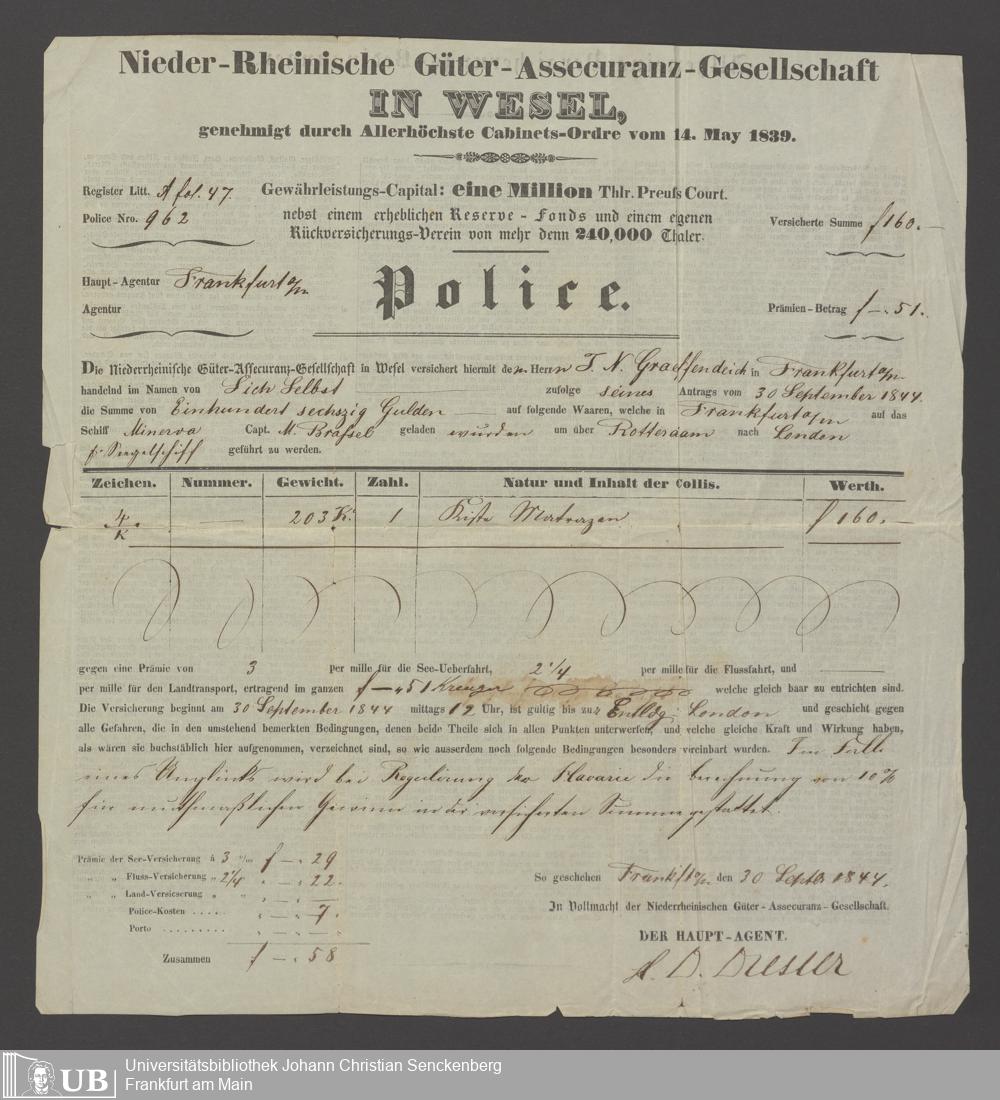 Nieder-Rheinische Güter-Assecuranz-Gesellschaft
IN WESEL,
genehmigt durch Allerhöchste Cabinets-Ordre vom 14. May 1839.
Register Litt. A fol. 47.
Police Nro. 962
Gewährleistungs-Capital: eine Million Thlr. Preuss Court.
nebst einem erheblichen Reserve-Fonds und einem eigenen
Rückversicherungs-Verein von mehr denn 240,000 Thaler.
Versicherte Summe f 160.–
Haupt-Agentur Frankfurt a/m
Agentur
Police.
Prämien-Betrag f –. 51.
Die Niederrheinische Güter-Assecuranz-Gesellschaft in Wesel versichert hiermit den Herrn J. N. Graeffendeich in Frankfurt a/m
handelnd im Namen von Sich Selbst zufolge seines Antrags vom 30 September 1844.
die Summe von Einhundert sechszig Gulden auf folgende Waaren, welche in Frankfurt a/m auf das
Schiff Minerva Capt. M. Brassel geladen wurden um über Rotterdam nach London
pr Seegelschiff geführt zu werden.
Zeichen. Nummer. Gewicht. Zahl. Natur und Inhalt der Collis. Werth.
4/K — 203 K. 1 Kiste Matrazen f 160.–
gegen eine Prämie von 3 per mille für die See-Ueberfahrt, 2 1/4 per mille für die Flussfahrt, und
per mille für den Landtransport, ertragend im ganzen f –„ 51 Kreuzer welche gleich baar zu entrichten sind.
Die Versicherung beginnt am 30 September 1844 mittags 12 Uhr, ist gültig bis zur Entldg: London und geschieht gegen
alle Gefahren, die in den umstehend bemerkten Bedingungen, denen beide Theile sich in allen Punkten unterwerfen, und welche gleiche Kraft und Wirkung haben,
als wären sie buchstäblich hier aufgenommen, verzeichnet sind, so wie ausserdem noch folgende Bedingungen besonders vereinbart wurden. Im Falle
eines Unglücks wird bei Regulirung der Havarie die Berechnung von 10 %
für muthmaßlichen Gewinn in der versicherten Summe gestattet.
Prämie der See-Versicherung à 3 0/00 f –„ 29
„ „ Fluss-Versicherung „ 2 1/4 „ –„ 22.
„ „ Land-Versicserung „ „ „ –„ –
Police-Kosten ..... „ –„ 7.
Porto ......... „ –„ –
Zusammen f –„ 58
So geschehen Frankft a/m. den 30 Septbr 1844.
In Vollmacht der Niederrheinischen Güter-Assecuranz-Gesellschaft.
DER HAUPT-AGENT.
UB
Universitätsbibliothek Johann Christian Senckenberg
Frankfurt am Main